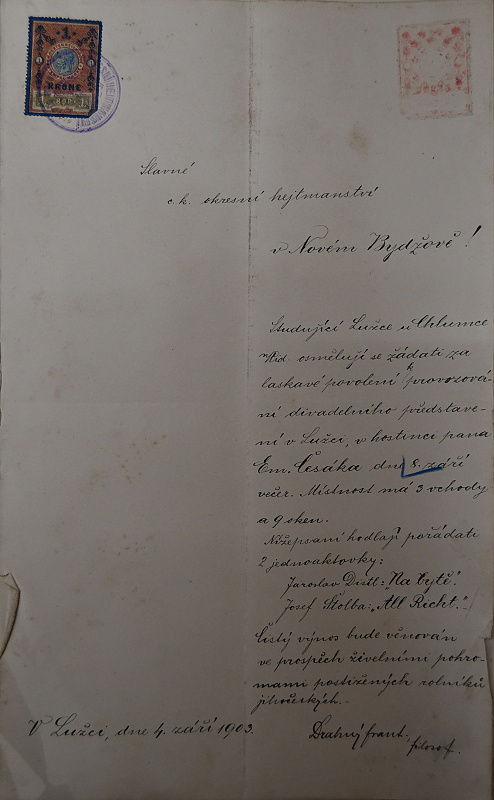 1
KRONE
Slavné
c.k. okresní hejtmanství
v Novém Bydžově!
Studující Lužce u Chlumce
n/Cid. osmělují se žádati za
laskavé povolení k provozová-
ní divadelního představe-
ní v Lužci, v hostinci pana
Em. Česáka dne 8. září
večer. Místnost má 3 vchody
a 9 oken.
Nížepsaní hodlají pořádati
2 jednoaktovky:
Jaroslav Distl: „Na bytě".
Josef Štolba: „All Richt".-
Čistý výnos bude věnován
ve prospěch živelními pohro-
mami postižených rolníků
jihočeských.-
V Lužci, dne 4. září 1903.
Drahný Frant.
filosof.